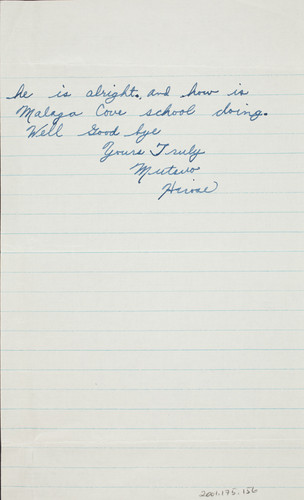 he is alright. and how is
Malaga Cove school doing.
Well Good bye
Yours Truly
Mutsuo
Hirose
2001.175.156